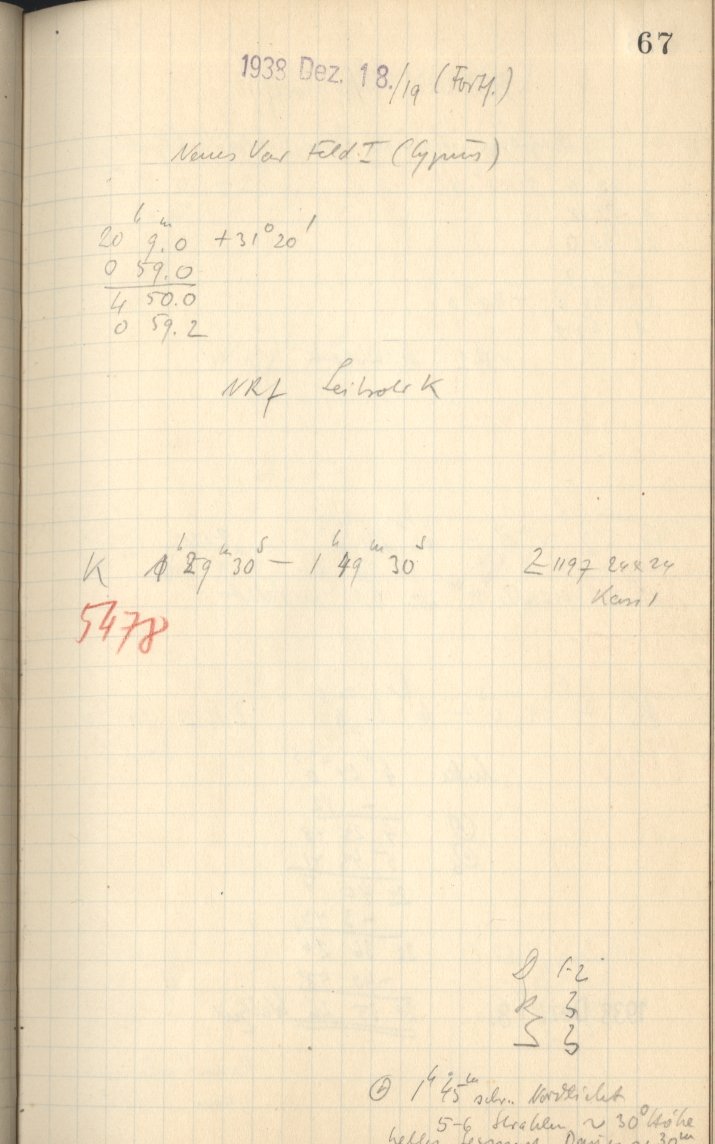 67
1938 Dez. 18./19 (Forts.)
Neues Var Feld I (Cygnus)
20ʰ 9.0ᵐ +31°20'
0 59.0
4 50.0
0 59.2
NRf Leitrohr K
K 29ᵐ 30ˢ — 1ʰ 49ᵐ 30ˢ Z 1197 24x24
Kass 1
5478
D 1-2
R 3
S 3
1ʰ 45ᵐ schw. Nordlicht
5-6 Strahlen, ~ 30° Höhe